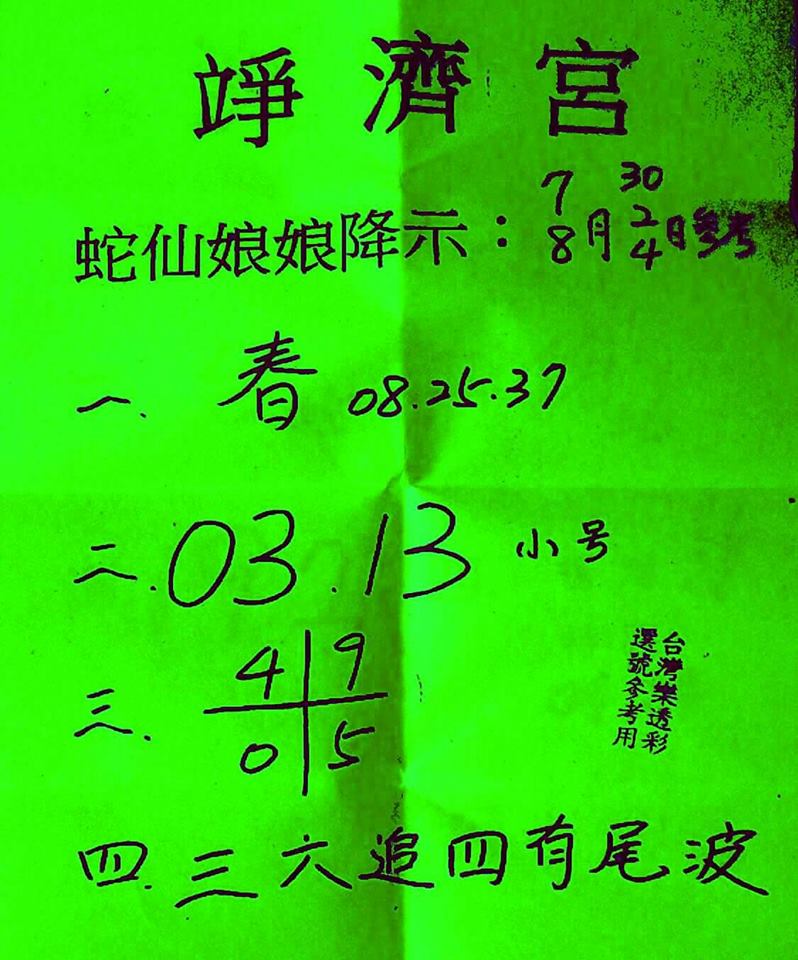 竫濟宮
蛇仙娘娘降示：7 30
8月 2 4日參考
一. 春 08.25.37
二. 03.13 小号
三. 4 9
0 5
台灣樂透彩
選號參考用
四. 三六追四有尾波